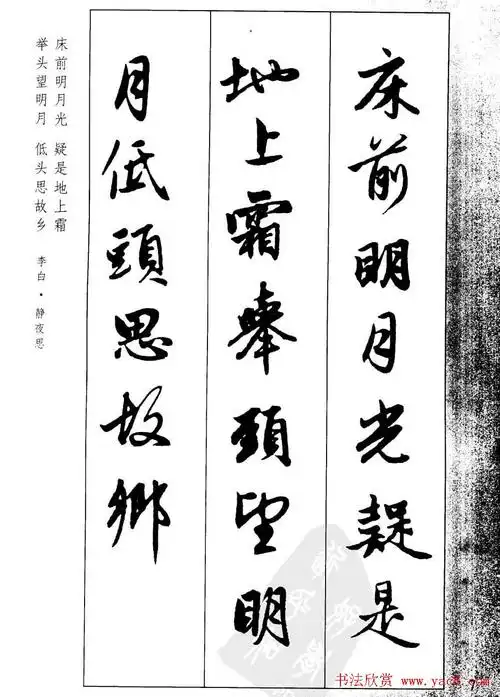 床前明月光疑是
地上霜舉頭望明
月低頭思故鄉
床前明月光　疑是地上霜
举头望明月　低头思故乡
李白·静夜思
书法欣赏